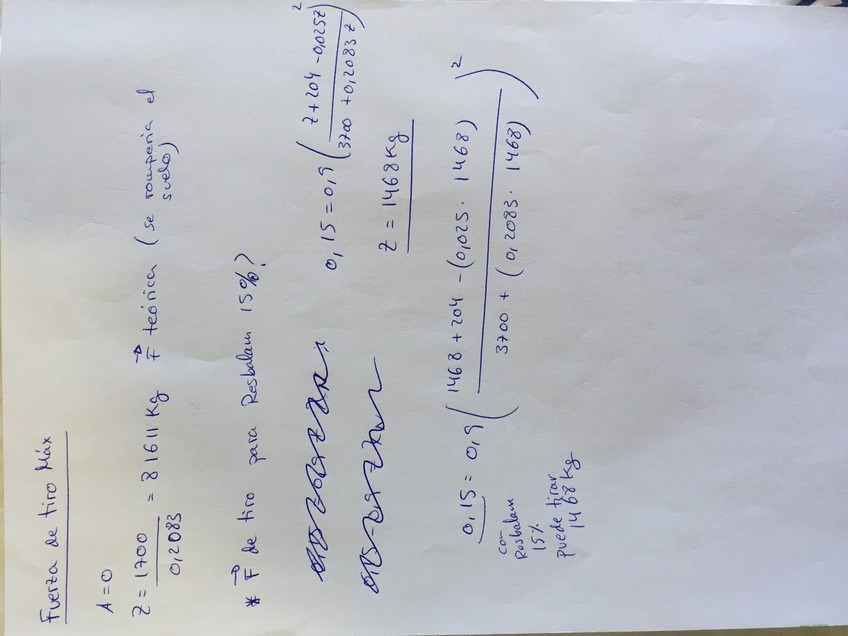 Fuerza de tiro Máx
A=0
Z = 1700 / 0,2083 = 81611 Kg F teórica (se rompería el suelo)
* F de tiro para Resbalam 15%?
0,15 = 0,9 ( Z+204 -0,025Z / 3700 +0,2083 Z )²
Z = 1468 Kg
0,15 = 0,9 ( 1468 + 204 - (0,025 · 1468) / 3700 + (0,2083 · 1468) )²
con
Resbalam
15%
puede tirar
1468 kg